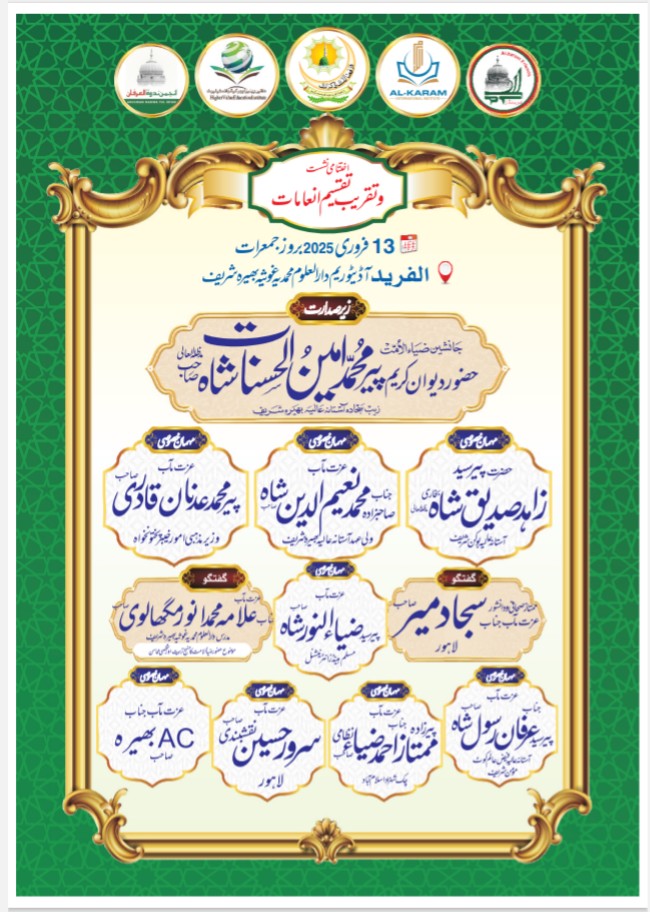 انجمن ندوۃ العرفان
AL-KARAM
INTERNATIONAL INSTITUTE
اختتامی نشست
و تقریب تقسیم انعامات
13 فروری 2025 بروز جمعرات
الفرید آڈیٹوریم دارالعلوم محمدیہ غوثیہ بھیرہ شریف
زیر صدارت
جانشین ضیاء الامت
حضور دیوان کریم پیر محمد امین الحسنات شاہ صاحب مدظلہ العالی
زیب سجادہ آستانہ عالیہ بھیرہ شریف
مہمان خصوصی
حضرت پیر سید
زاہد صدیق شاہ بخاری
آستانہ عالیہ توکن شریف
مہمان خصوصی
عزت مآب
جناب صاحبزادہ محمد نعیم الدین شاہ صاحب
ولی عہد آستانہ عالیہ بھیرہ شریف
مہمان خصوصی
عزت مآب
پیر محمد عدنان قادری صاحب
وزیر مذہبی امور خیبر پختونخواہ
گفتگو
ممتاز صحافی و دانشور
عزت مآب جناب سجاد میر صاحب
لاہور
مہمان خصوصی
عزت مآب
پیر سید ضیاء النور شاہ صاحب
مسلم ہینڈز انٹرنیشنل
گفتگو
عزت مآب
جناب علامہ محمد انور مگھالوی صاحب
مدرس دارالعلوم محمدیہ غوثیہ بھیرہ شریف
مہمان خصوصی
عزت مآب
جناب
پیر سید عرفان رسول شاہ صاحب
مہمان خصوصی
عزت مآب
جناب
پیرزادہ ممتاز احمد ضیاء نظامی صاحب
چک شہزاد اسلام آباد
مہمان خصوصی
عزت مآب
سرور حسین نقشبندی صاحب
لاہور
مہمان خصوصی
عزت مآب جناب
AC بھیرہ
صاحب